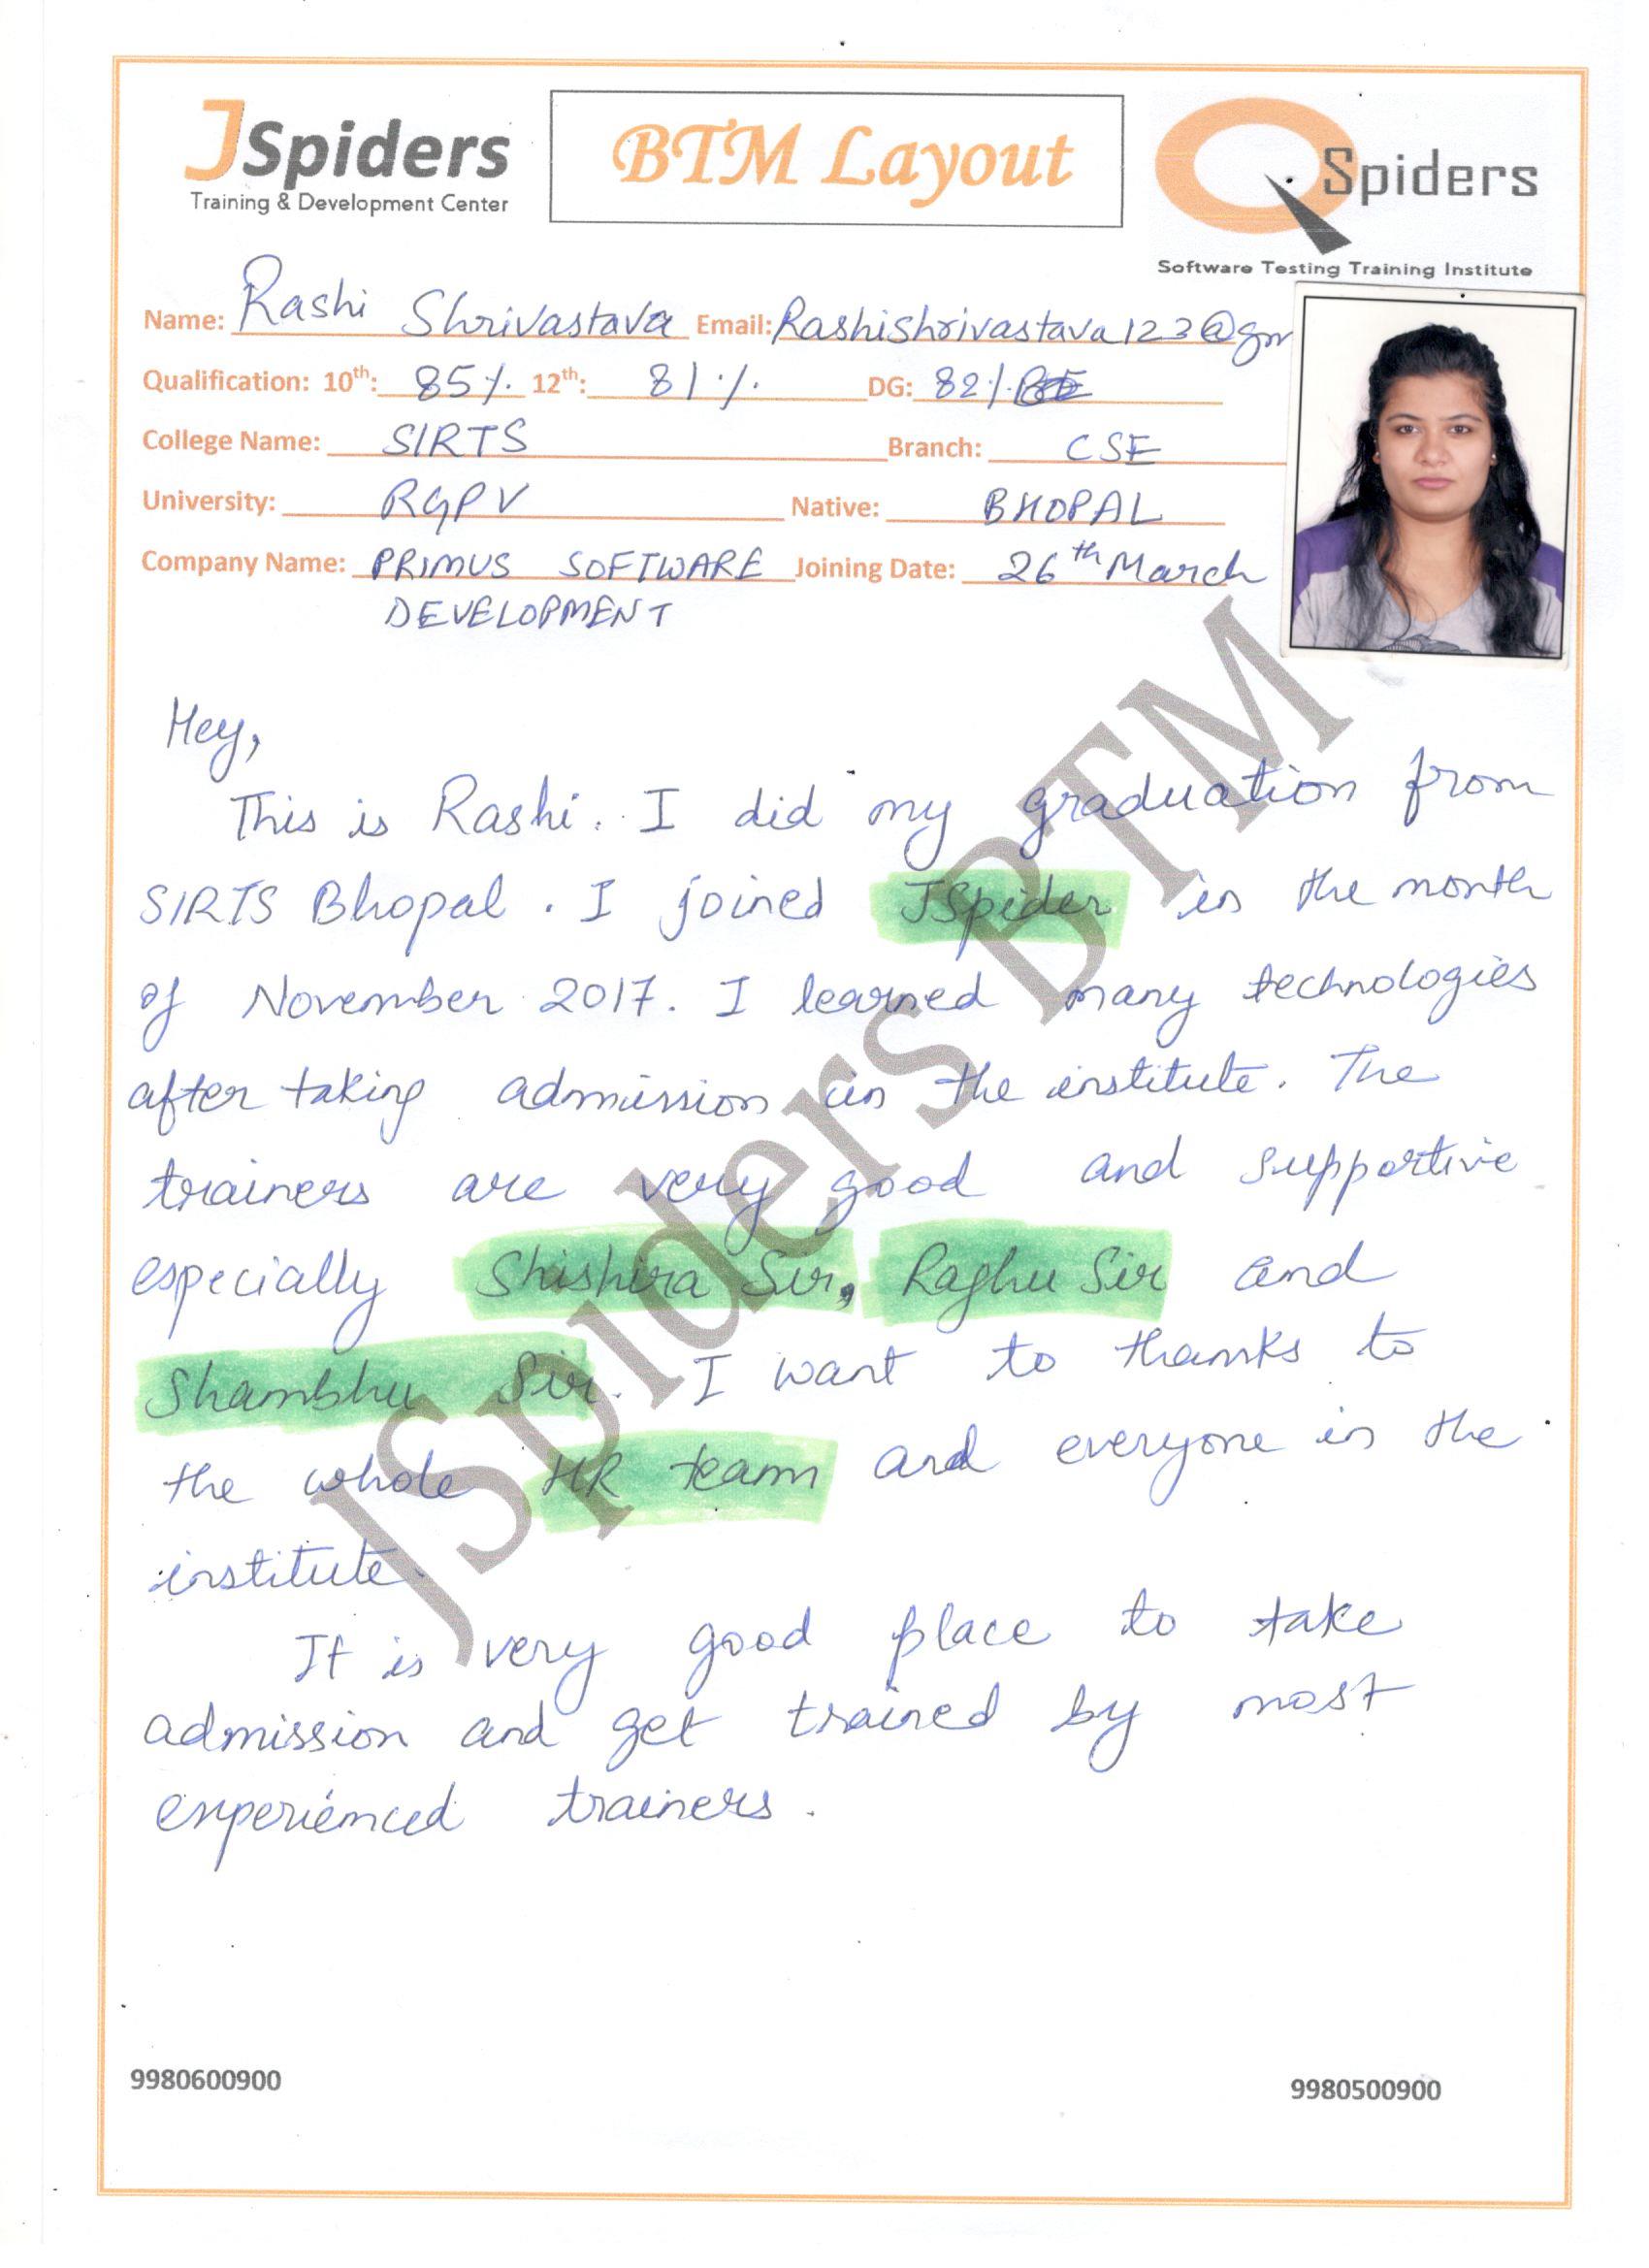 JSpiders
Training & Development Center
BTM Layout
QSpiders
Software Testing Training Institute
Name: Rashi Shrivastava Email: Rashishrivastava123@gm
Qualification: 10th: 85%. 12th: 81% DG: 82%
College Name: SIRTS Branch: CSE
University: RGPV Native: BHOPAL
Company Name: PRIMUS SOFTWARE Joining Date: 26th March
DEVELOPMENT
Hey,
This is Rashi. I did my graduation from
SIRTS Bhopal. I joined JSpider in the month
of November 2017. I learned many technologies
after taking admission in the institute. The
trainers are very good and supportive
especially Shishira Sir, Raghu Sir and
Shambhu Sir. I want to thanks to
the whole HR team and everyone in the
institute.
It is very good place to take
admission and get trained by most
experienced trainers.
JSpiders BTM
9980600900 9980500900